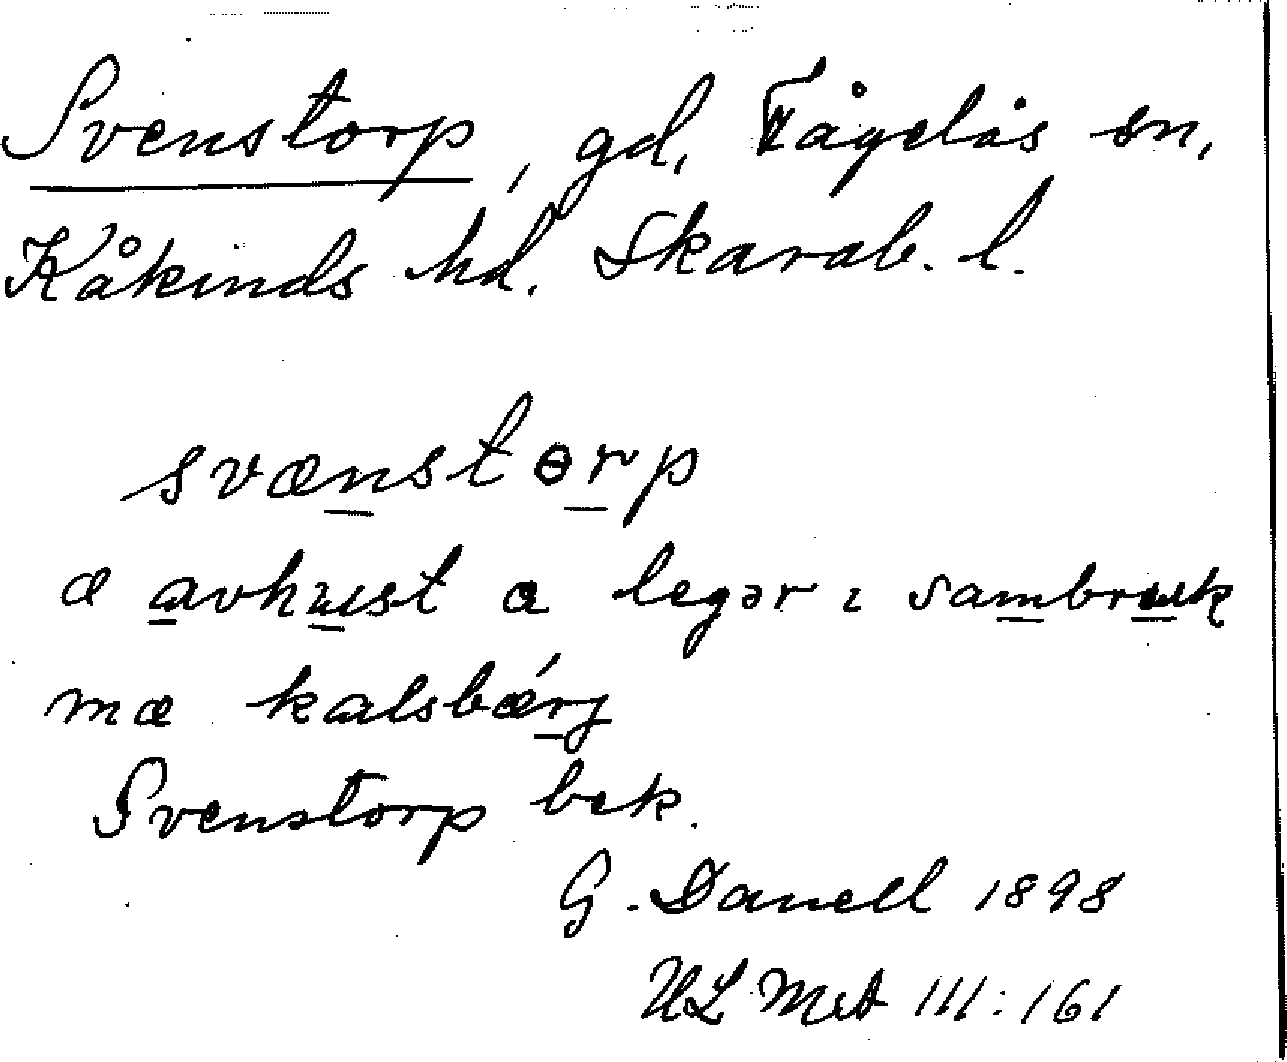 Svenstorp, gd, Fågelås sn,
Kåkinds hd. Skarab. l.
svænstɵrp
æ avhust a legər ɩ sambruk
mæ kalsbærj
Svenstorp bek.
G. Danell 1898
ULMA III:161